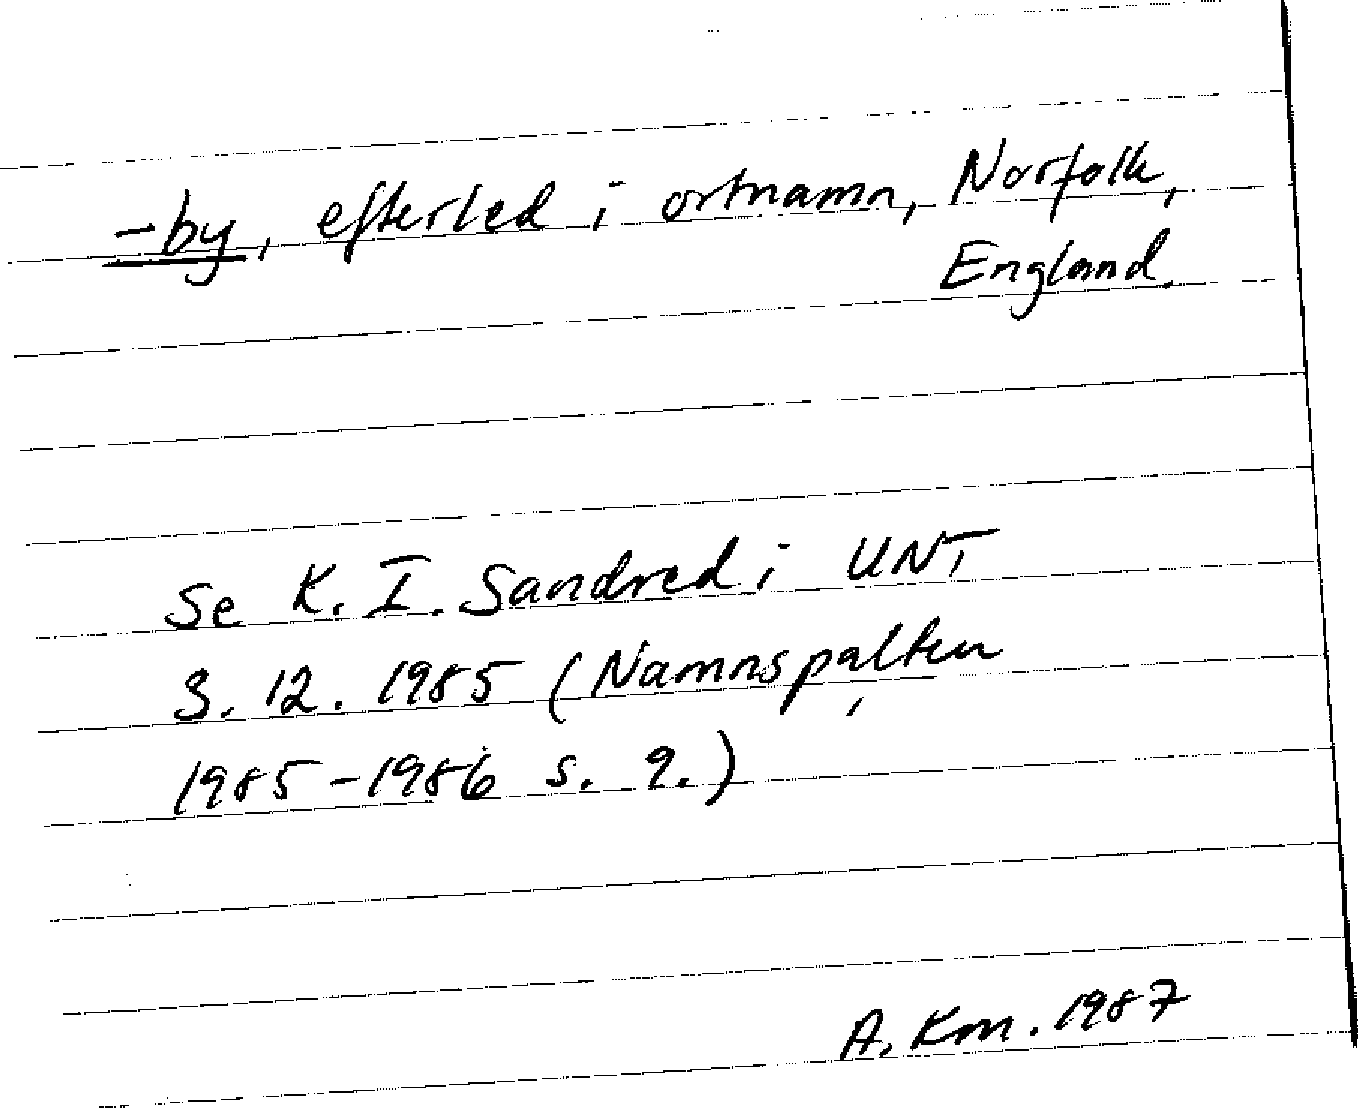 -by, efterled i ortnamn, Norfolk,
England.
Se K. I. Sandred i UNT
3. 12. 1985 (Namnspalten
1985-1986 s. 9.)
A. Km. 1987